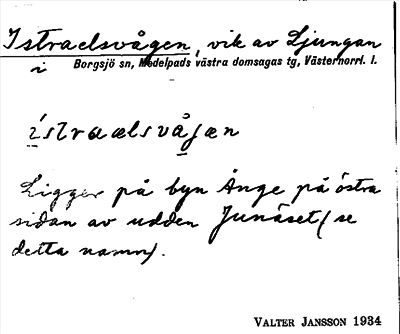 Istraelsvågen, vik av Ljungan
i Borgsjö sn, Medelpads västra domsagas tg, Västernorrl. l.
ístraælsvåjæn
Ligger på byn Ånge på östra
sidan av udden Junäset (se
detta namn).
VALTER JANSSON 1934